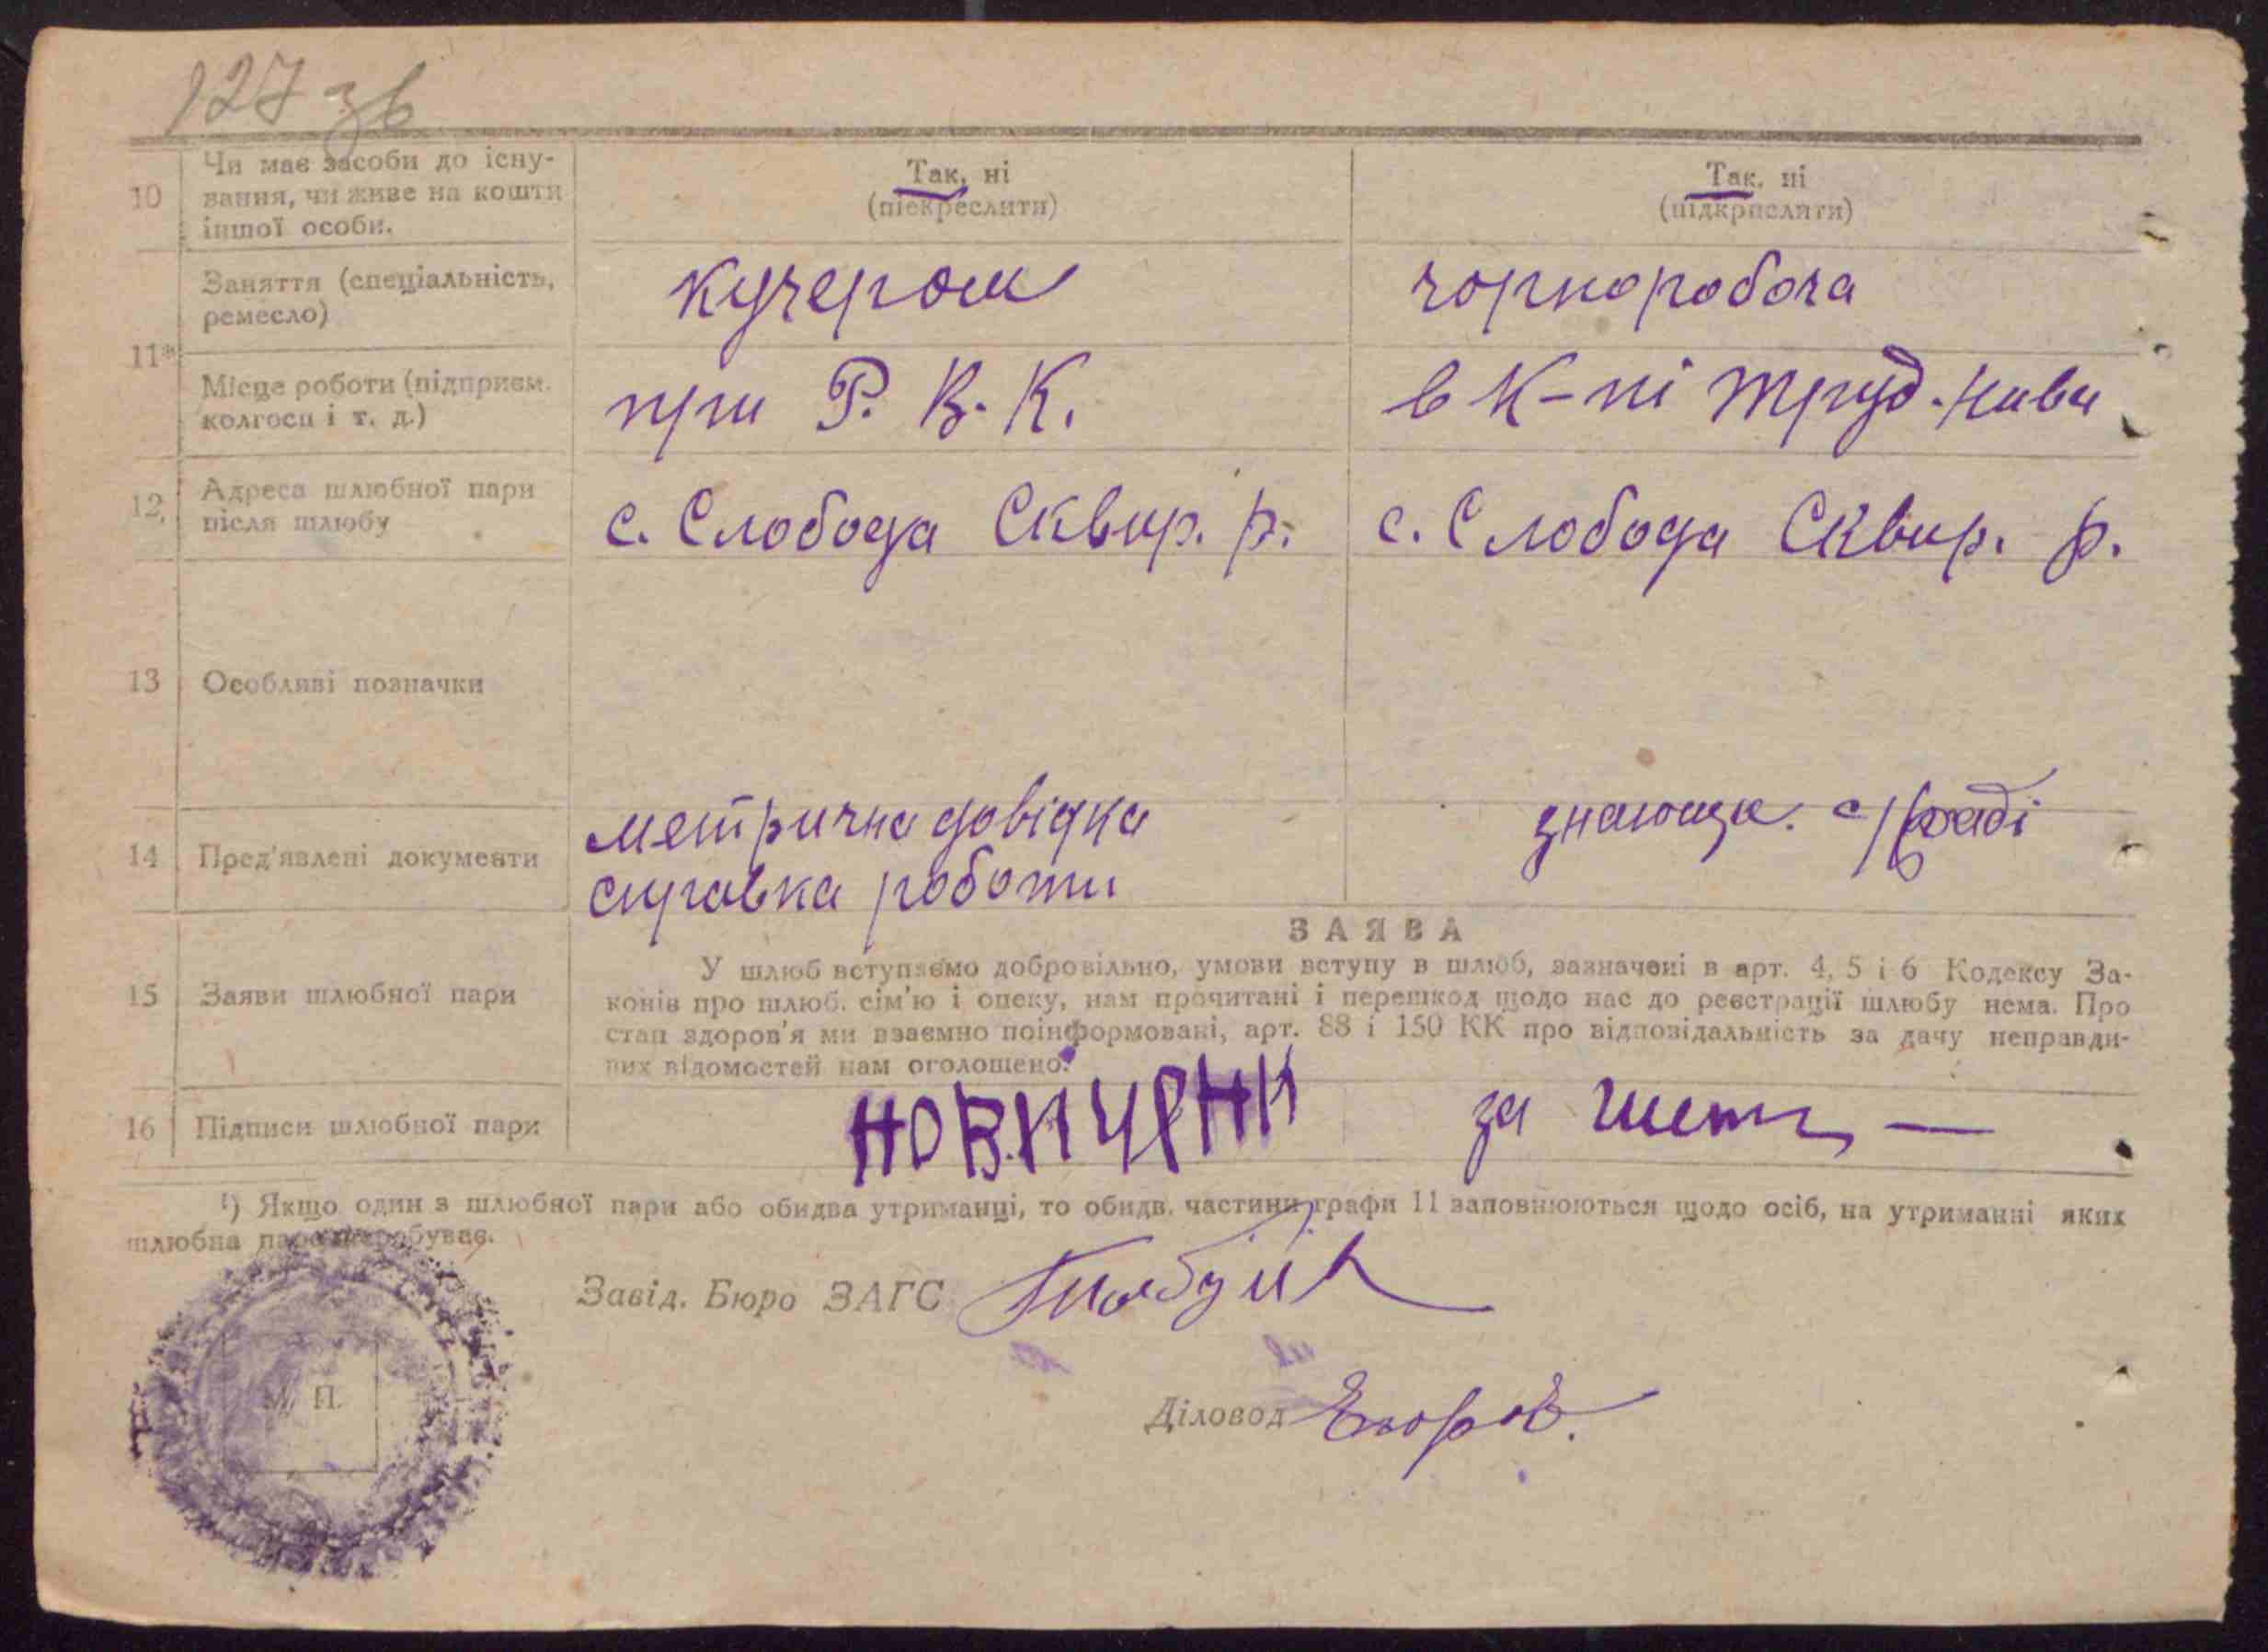 127 зв
10
Чи має засоби до існу-
вання, чи живе на кошти
іншої особи.
Так, ні
(піекреслити)
Так, ні
(підкрислити)
11*
Заняття (спеціальність,
ремесло)
кучером
чорноробоча
Місце роботи (підприєм.
колгосп і т. д.)
при Р. В. К.
в К-пі Труд. Нива
12,
Адреса шлюбної пари
після шлюбу
с. Слобода Сквир. р.
с. Слобода Сквир. р.
13
Особливі позначки
14
Пред'явлені документи
метрична довідка
справка роботи
15
Заяви шлюбної пари
ЗАЯВА
У шлюб вступаємо добровільно, умови вступу в шлюб, зазначені в арт. 4, 5 і 6 Кодексу За-
конів про шлюб. сім'ю і опеку, нам прочитані і перешкод щодо нас до реєстрації шлюбу нема. Про
стан здоров'я ми взаємно поінформовані, арт. 88 і 150 КК про відповідальність за дачу неправди-
вих відомостей нам оголошено.
16
Підписи шлюбної пари
за
¹) Якщо один з шлюбної пари або обидва утриманці, то обидв. частини графи 11 заповнюються щодо осіб, на утриманні яких
шлюбна пара перебуває.
Завід. Бюро ЗАГС
М. П.
Діловод